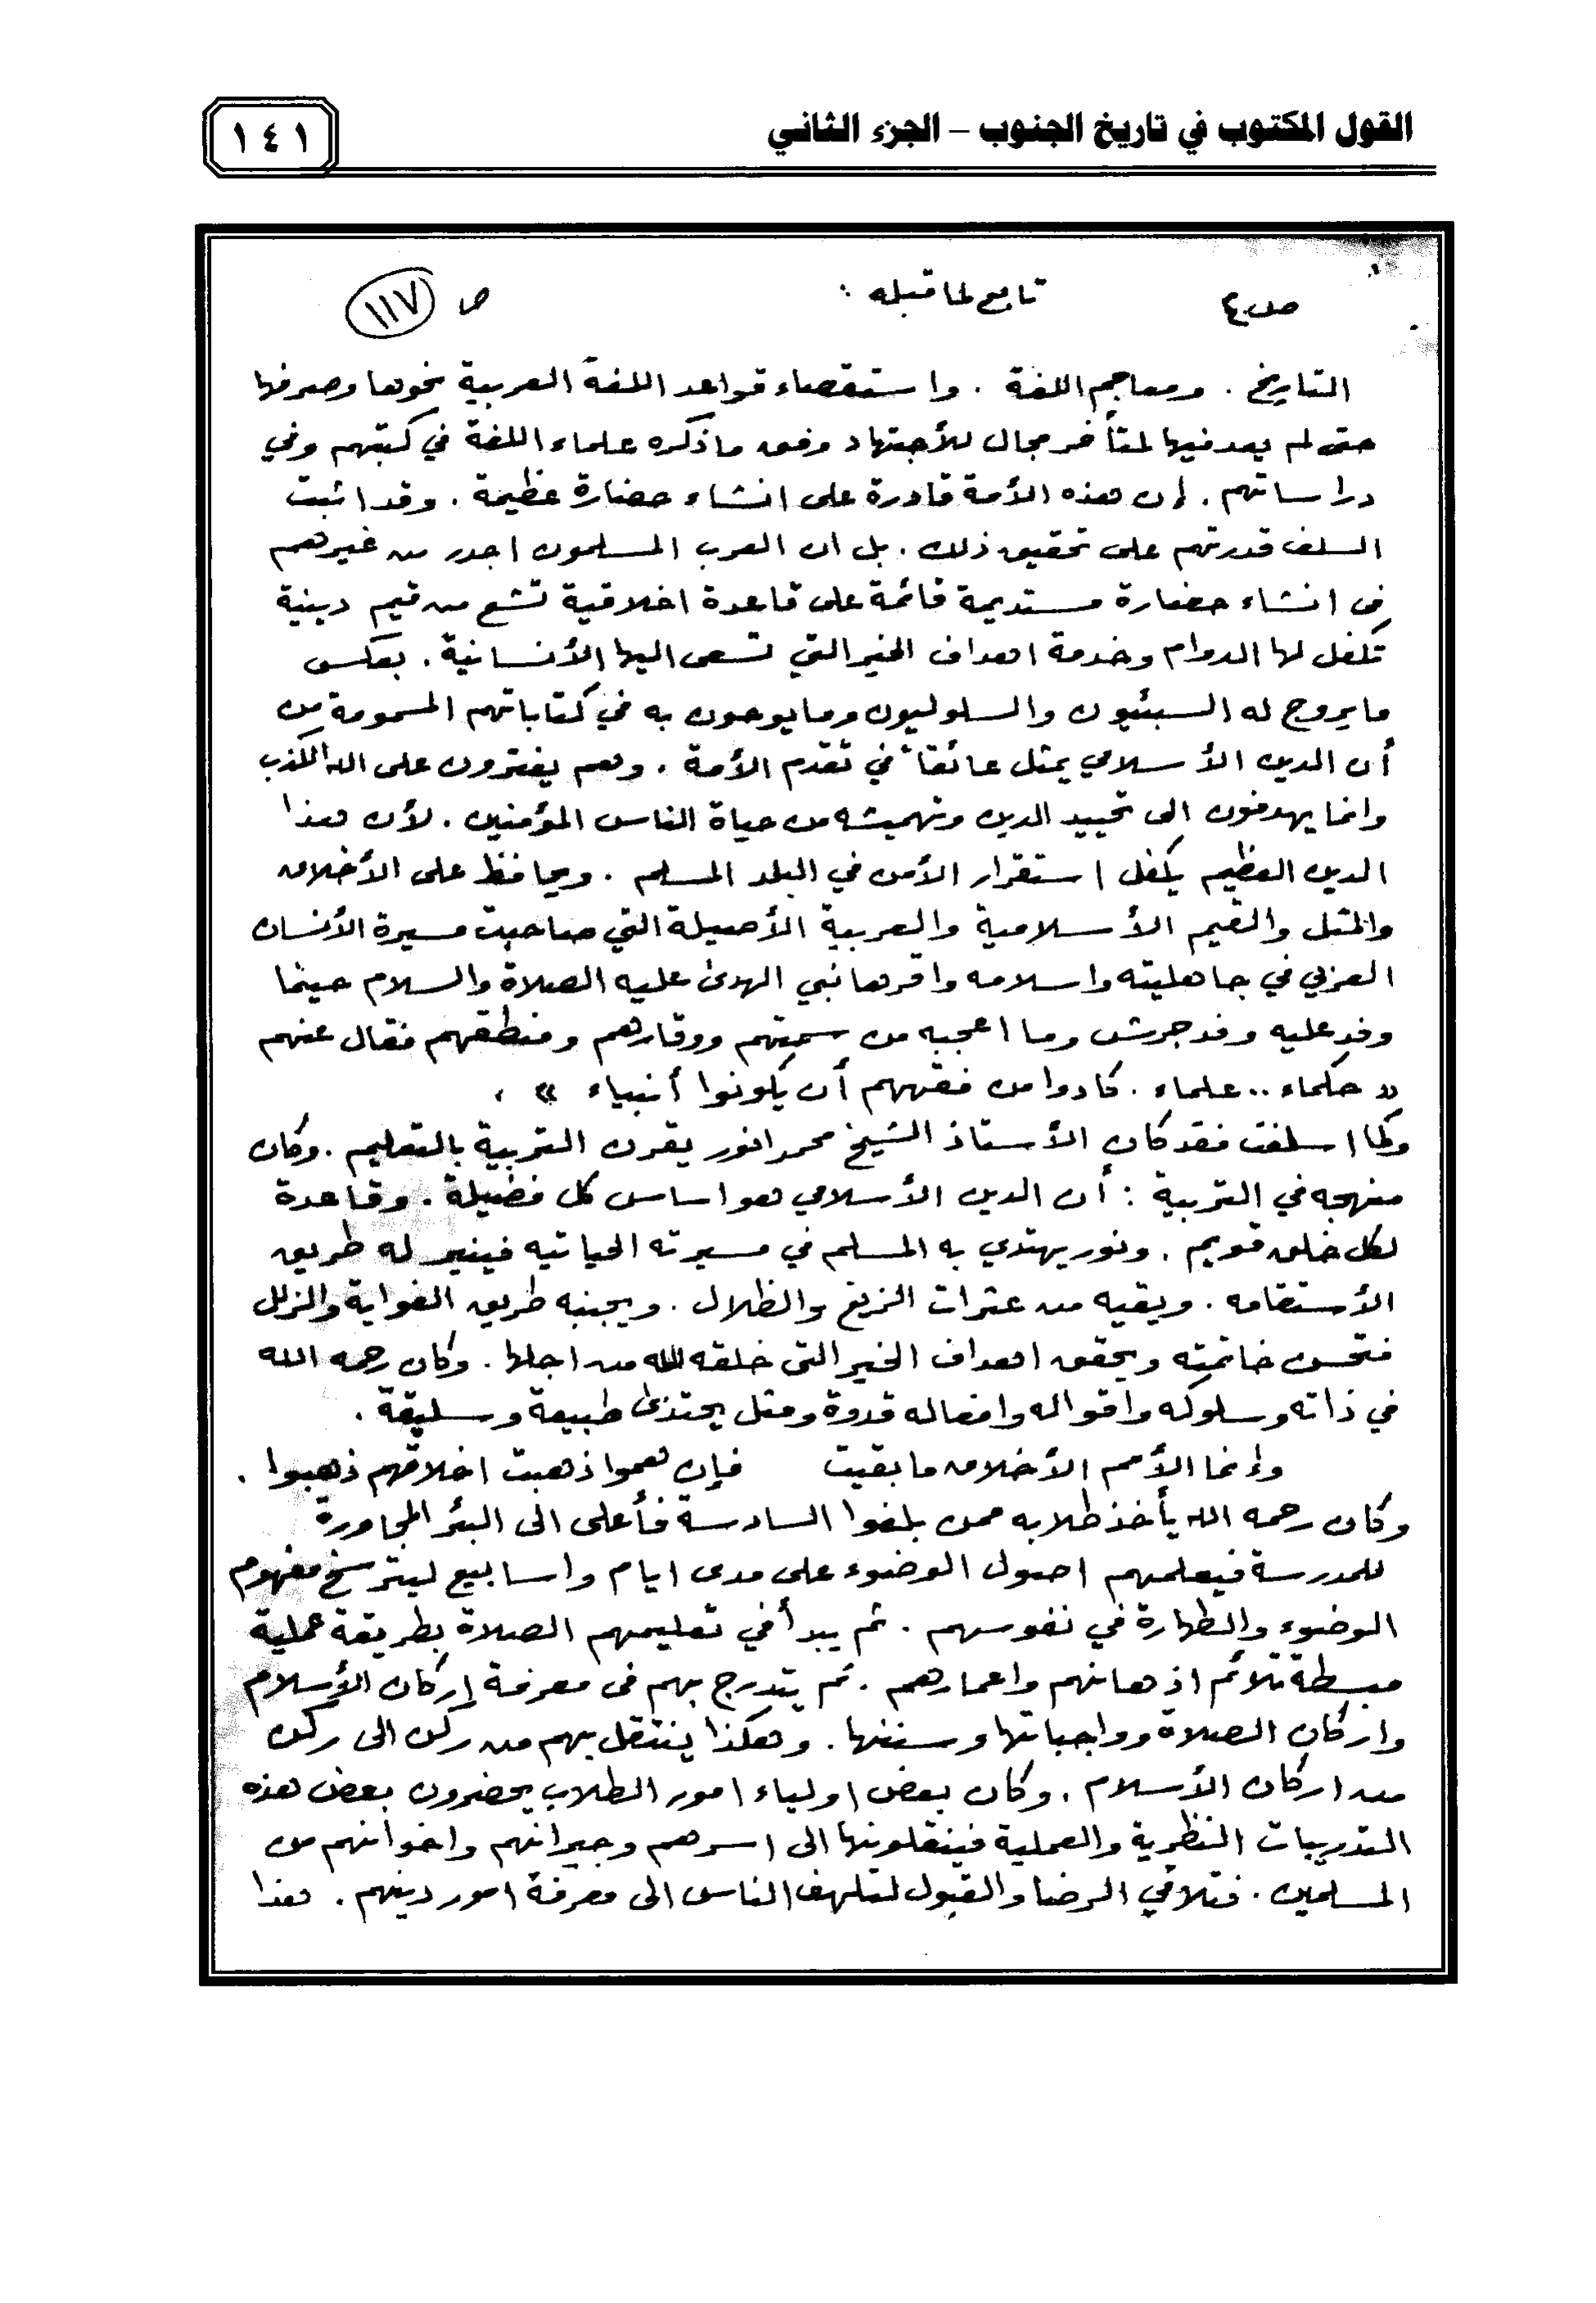 القول المكتوب في تاريخ الجنوب – الجزء الثاني
١٤١
ص٤ تابع لما قبله : ص ١١٧
التاريخ . ومعاجم اللغة . واستقصاء قواعد اللغة العربية نحوها وصرفها
حتى لم يعد فيها لمتأخر مجال للأجتهاد وفق ماذكره علماء اللغة في كتبهم وفي
دراساتهم . إن هذه الأمة قادرة على انشاء حضارة عظيمة . وقد اثبت
السلف قدرتهم على تحقيق ذلك . بل ان العرب المسلمون اجدر من غيرهم
في انشاء حضارة مستديمة قائمة على قاعدة اخلاقية تشع من قيم دينية
تكفل لها الدوام وخدمة اهداف الخير التي تسعى اليها الأنسانية . بعكس
ما يروج له السبئيون والسلوليون وما يوحون به في كتاباتهم المسمومة من
أن الدين الأسلامي يمثل عائقاً في تقدم الأمة . وهم يفترون على الله الكذب
وانما يهدفون الى تحييد الدين وتهميشه من حياة الناس المؤمنين . لأن هذا
الدين العظيم يكفل استقرار الأمن في البلد المسلم . ويحافظ على الأخلاق
والمثل والقيم الأسلامية والعربية الأصيلة التي صاحبت مسيرة الأنسان
العربي في جاهليته واسلامه واقرها نبي الهدى عليه الصلاة والسلام حينما
وفد عليه وفد جرش وما اعجبه من سمتهم ووقارهم ومنطقهم فقال عنهم
« حكماء .. علماء . كادوا من فقههم أن يكونوا أنبياء » .
وكما اسلفت فقد كان الأستاذ الشيخ محمد انور يقرن التربية بالتعليم . وكان
منهجه في التربية : أن الدين الأسلامي هو اساس كل فضيلة . وقاعدة
لكل خلق قويم . ونور يهتدي به المسلم في مسيرته الحياتيه فينير له طريق
الأستقامه . ويقيه من عثرات الزيغ والظلال . ويجنبه طريق الغواية والزلل
فتحسن خاتمته ويحقق اهداف الخير التى خلقه الله من اجلها . وكان رحمه الله
في ذاته وسلوكه واقواله وافعاله قدوة ومثل يحتذى طبيعة وسليقة .
وإنما الأمم الأخلاق ما بقيت فإن همو اذهبت اخلاقهم ذهبوا .
وكان رحمه الله يأخذ طلابه ممن بلغوا السادسة فأعلى الى البئر المجاورة
للمدرسة فيعلمهم اصول الوضوء على مدى ايام واسابيع ليترسخ مفهوم
الوضوء والطهارة في نفوسهم . ثم يبدأ في تعليمهم الصلاة بطريقة عملية
مبسطة تلائم اذهانهم واعمارهم . ثم يتدرج بهم فى معرفة إركان الأسلام
واركان الصلاة وواجباتها وسننها . وهكذا ينتقل بهم من ركن الى ركن
من اركان الأسلام . وكان بعض اولياء امور الطلاب يحضرون بعض هذه
التدريبات النظرية والعملية فينقلونها الى اسرهم وجيرانهم واخوانهم من
المسلمين . فتلاقي الرضا والقبول لتلهف الناس الى معرفة امور دينهم . هذا